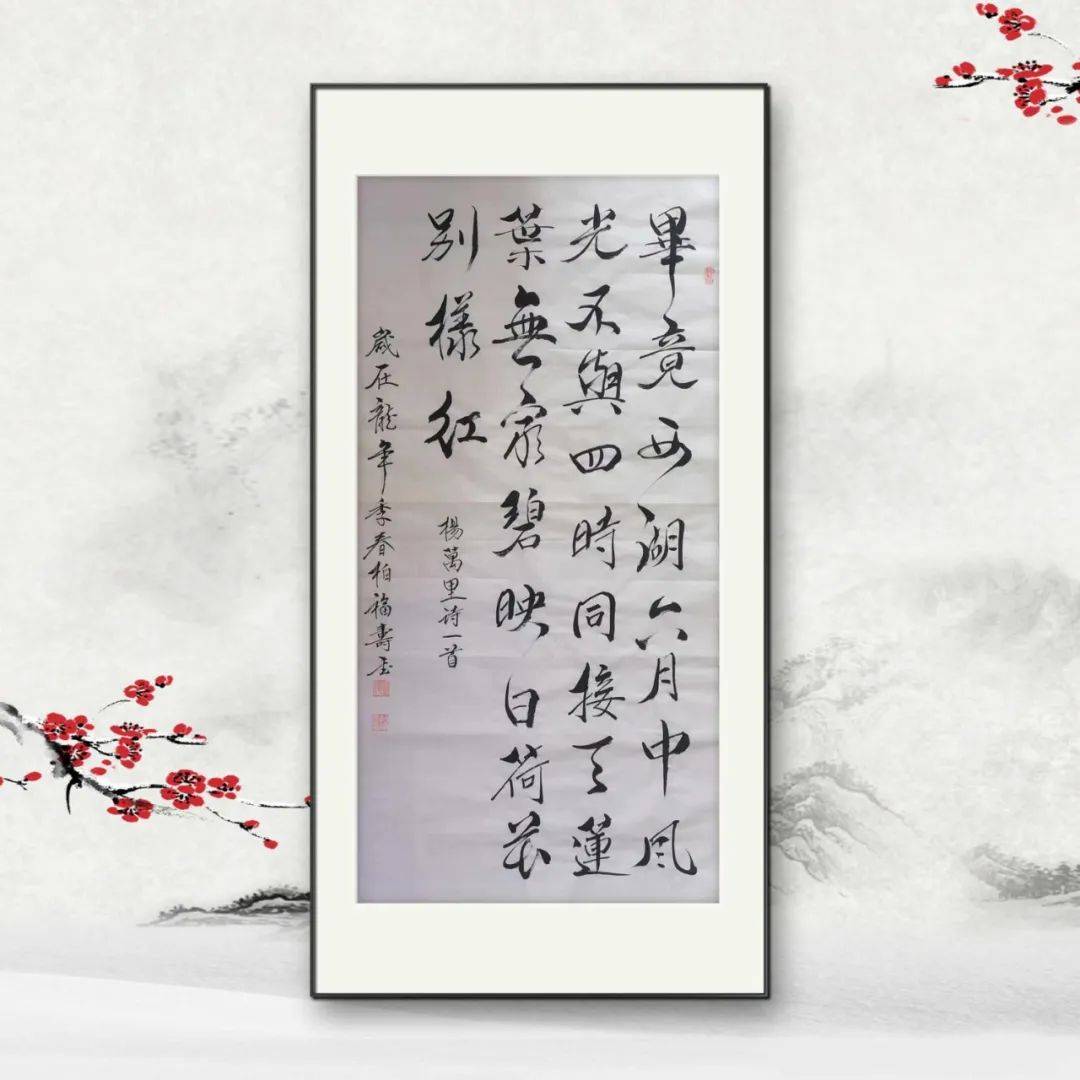 畢竟西湖六月中風
光不與四時同接天蓮
葉無窮碧映日荷花
別樣紅
楊萬里诗一首
歲在龍年季春柏福壽